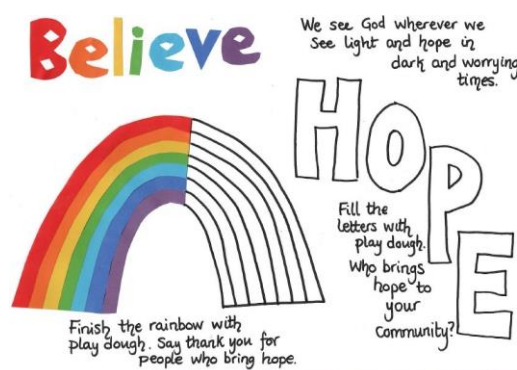 Believe
We see God wherever we
see light and hope in
dark and worrying
times.
HOPE
Fill the
letters with
play dough.
Who brings
hope to
your
community?
Finish the rainbow with
play dough. Say thank you for
people who bring hope.